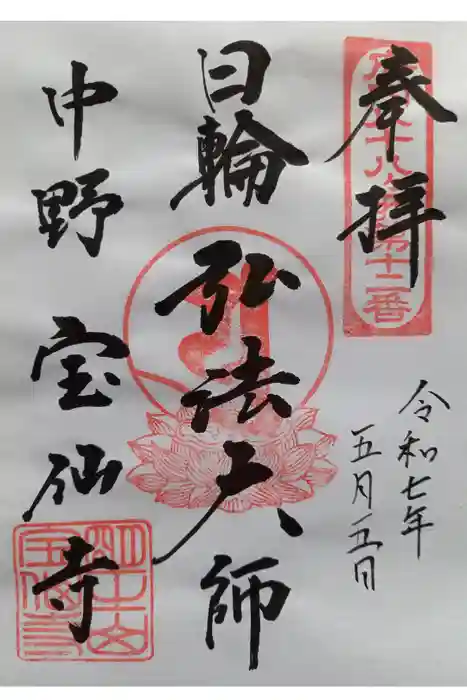 奉拝
第十二番
令和七年
五月五日
日輪 弘法大師
中野 宝仙寺
明王山
宝仙寺